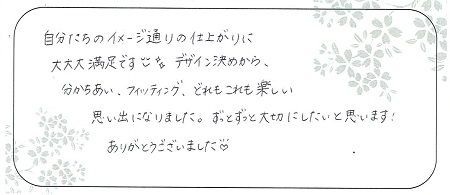 自分たちのイメージ通りの仕上がりに
大大大満足です デザイン決めから、
分かちあい、フィッティング、どれもこれも楽しい
思い出になりました。ずっとずっと大切にしたいと思います!
ありがとうございました♡